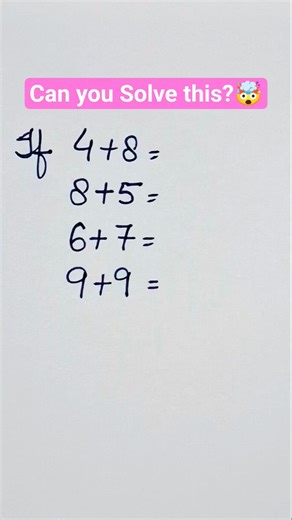 Can you Solve this?🤯
If 4+8=
8+5=
6+7=
9+9=